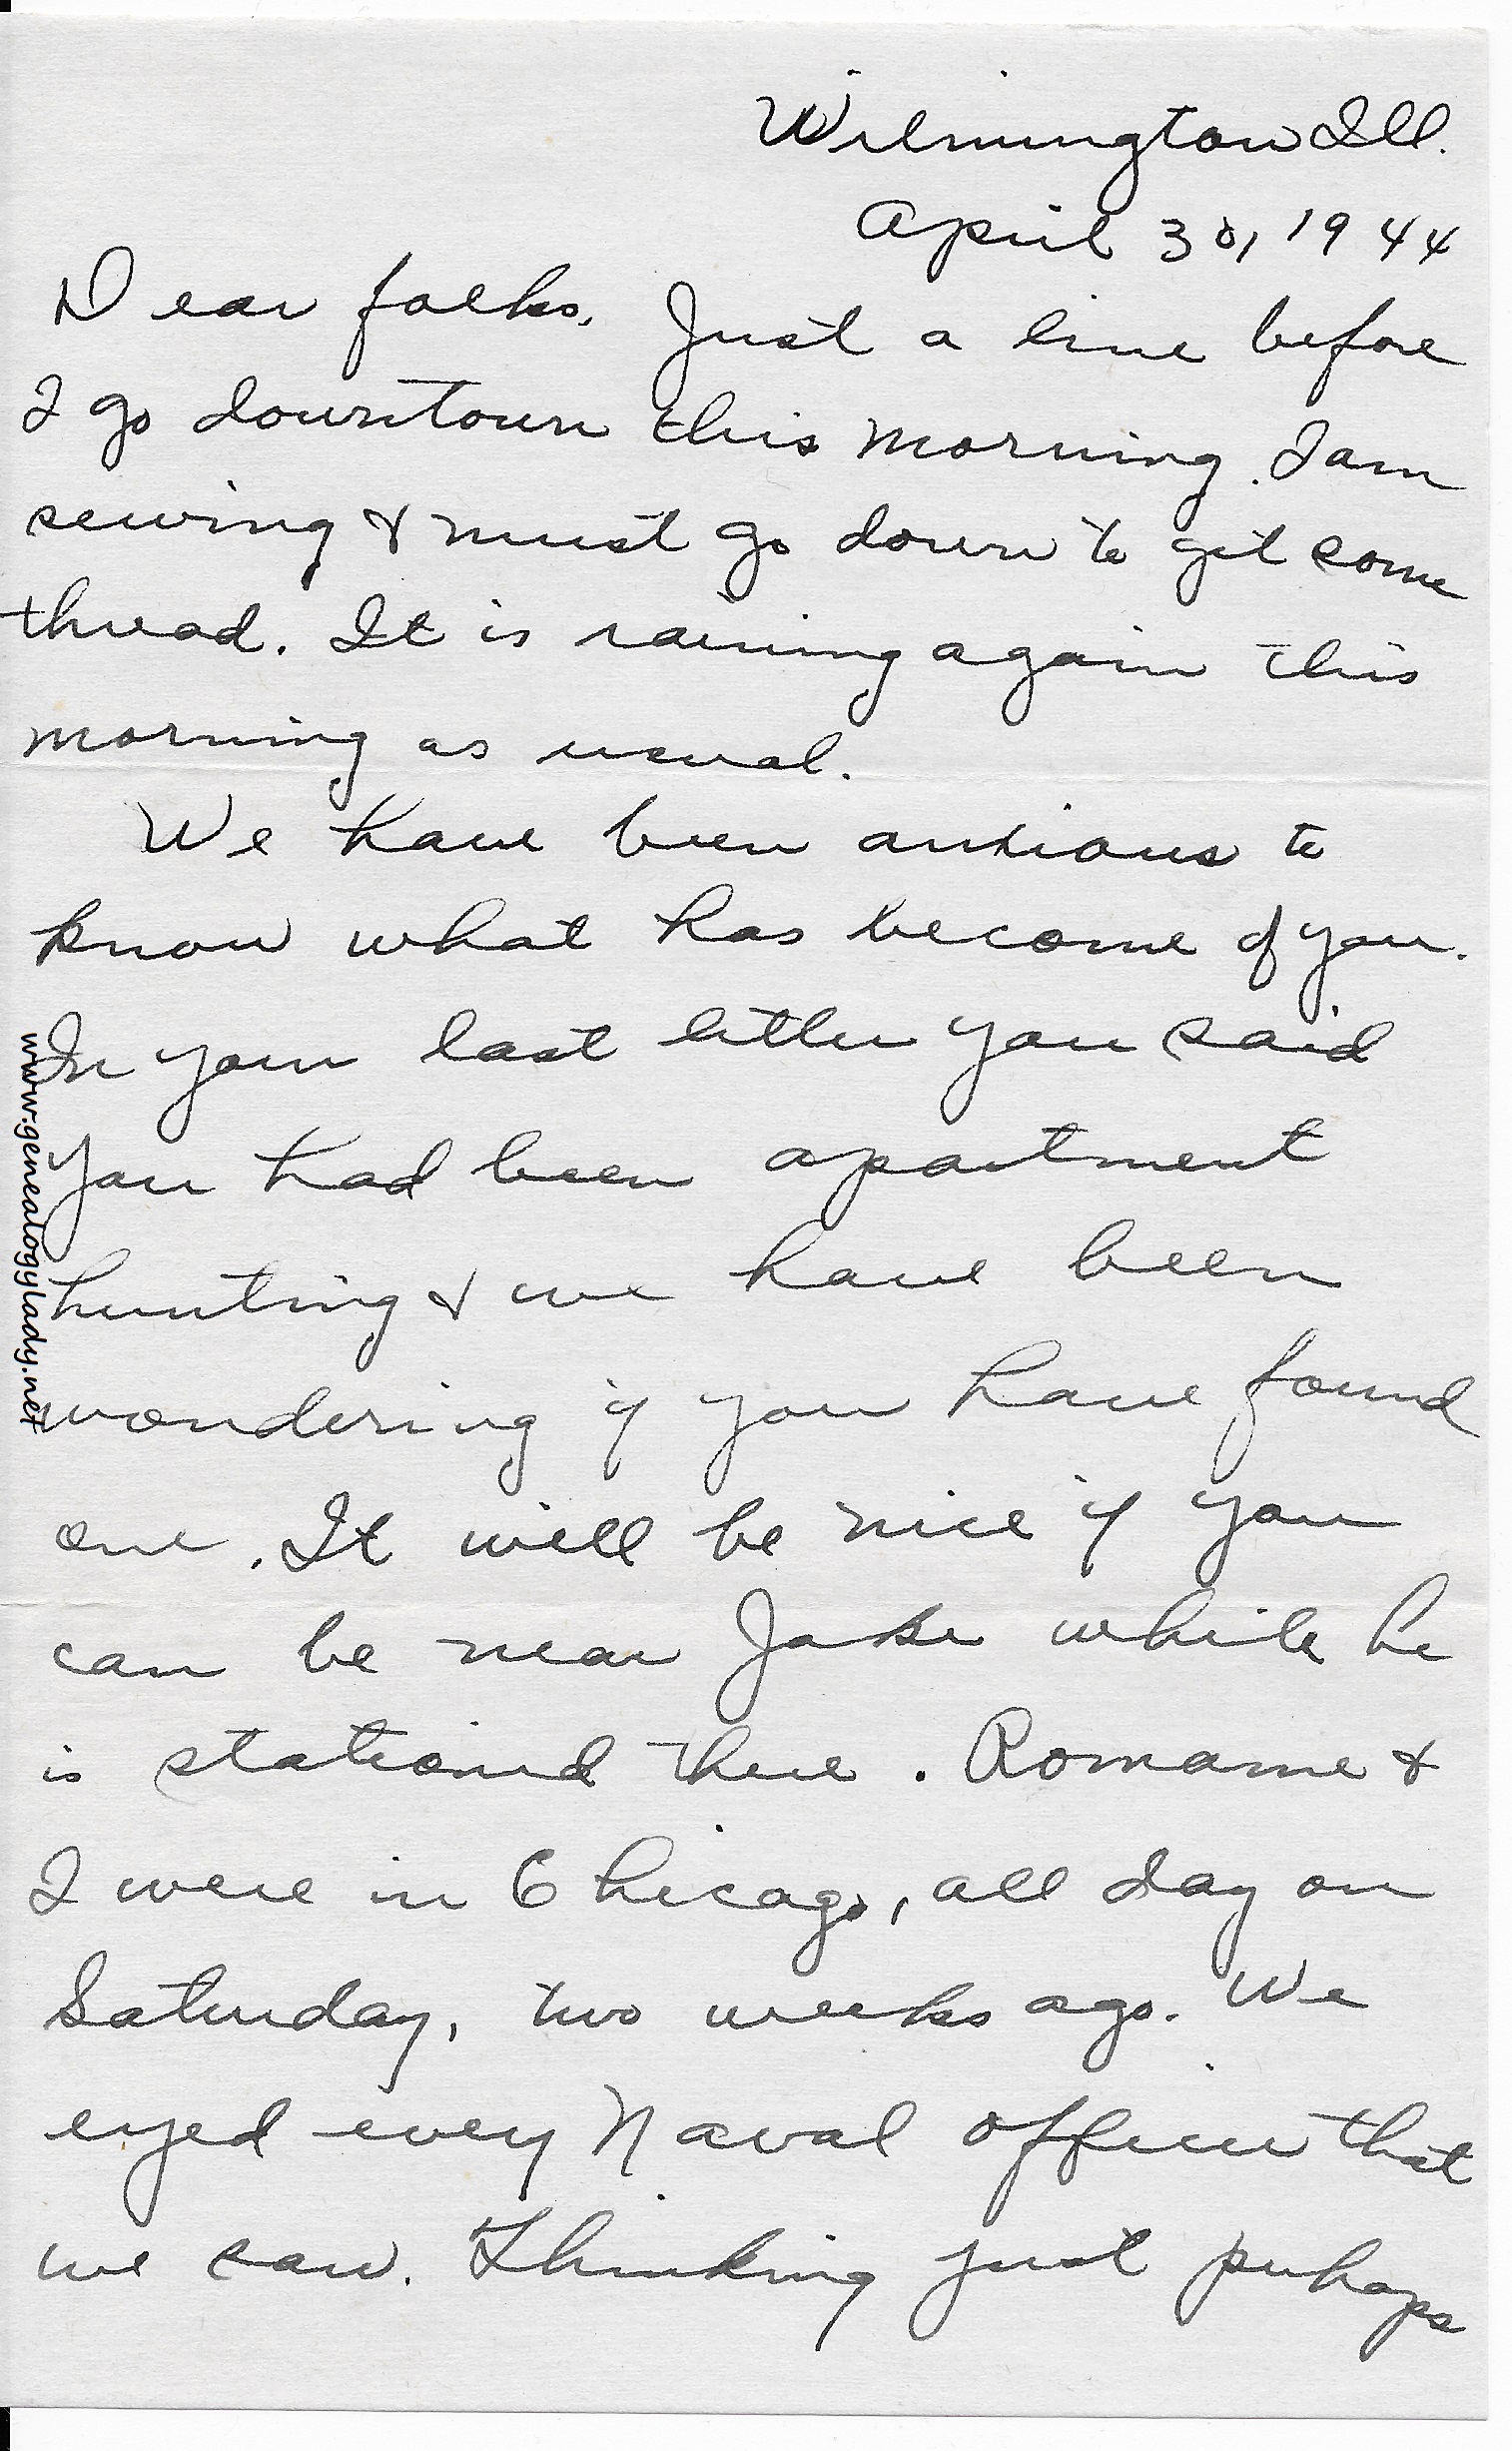 Wilmington Ill.
April 30, 1944
Dear folks, Just a line before
I go downtown this morning. I am
sewing & must go down to get some
thread. It is raining again this
morning as usual.
We have been anxious to
know what has become of you.
In your last letter you said
you had been apartment
hunting & we have been
wondering if you have found
one. It will be nice if you
can be near Jake while he
is stationed there. Romaine &
I were in Chicago, all day on
Saturday, two weeks ago. We
eyed every Naval officer that
we saw. Thinking just perhaps
www.genealogylady.net